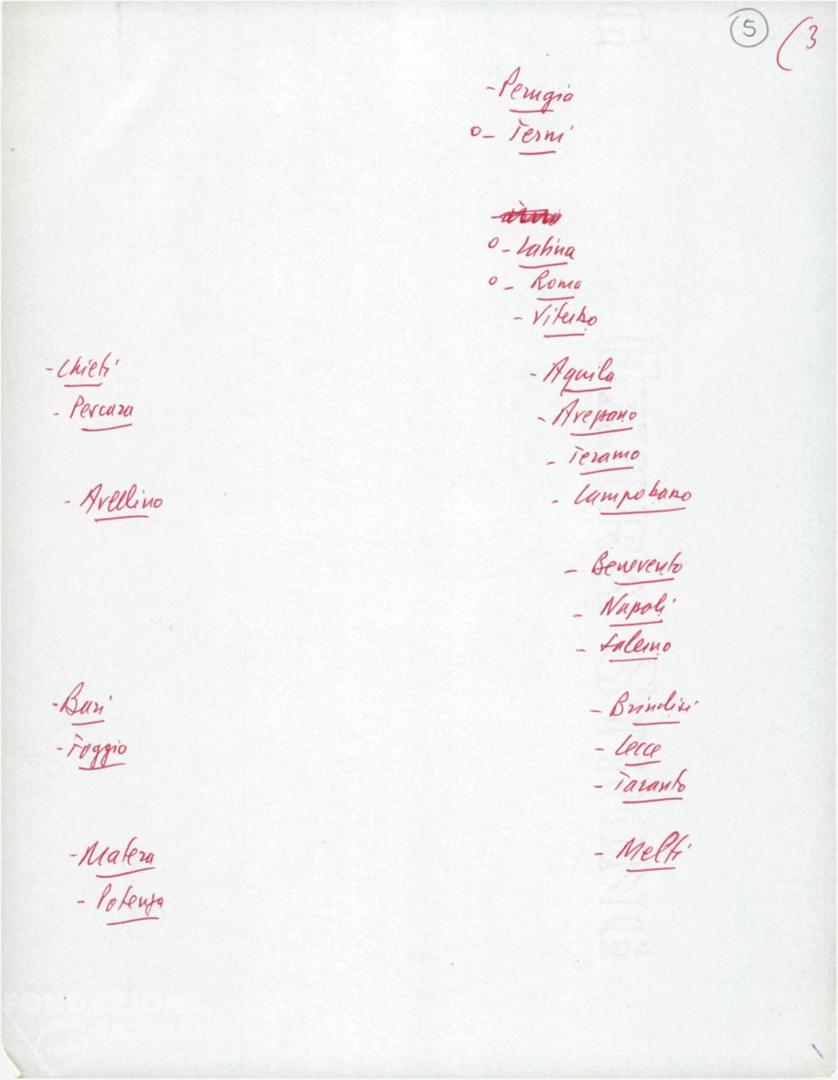 5 (3
- Perugia
o - Terni
o - Latina
o - Roma
- Viterbo
- Chieti
- Pescara
- Avellino
- Bari
- Foggia
- Matera
- Potenza
- Aquila
- Avezzano
- Teramo
- Campobasso
- Benevento
- Napoli
- Salerno
- Brindisi
- Lecce
- Taranto
- Melfi